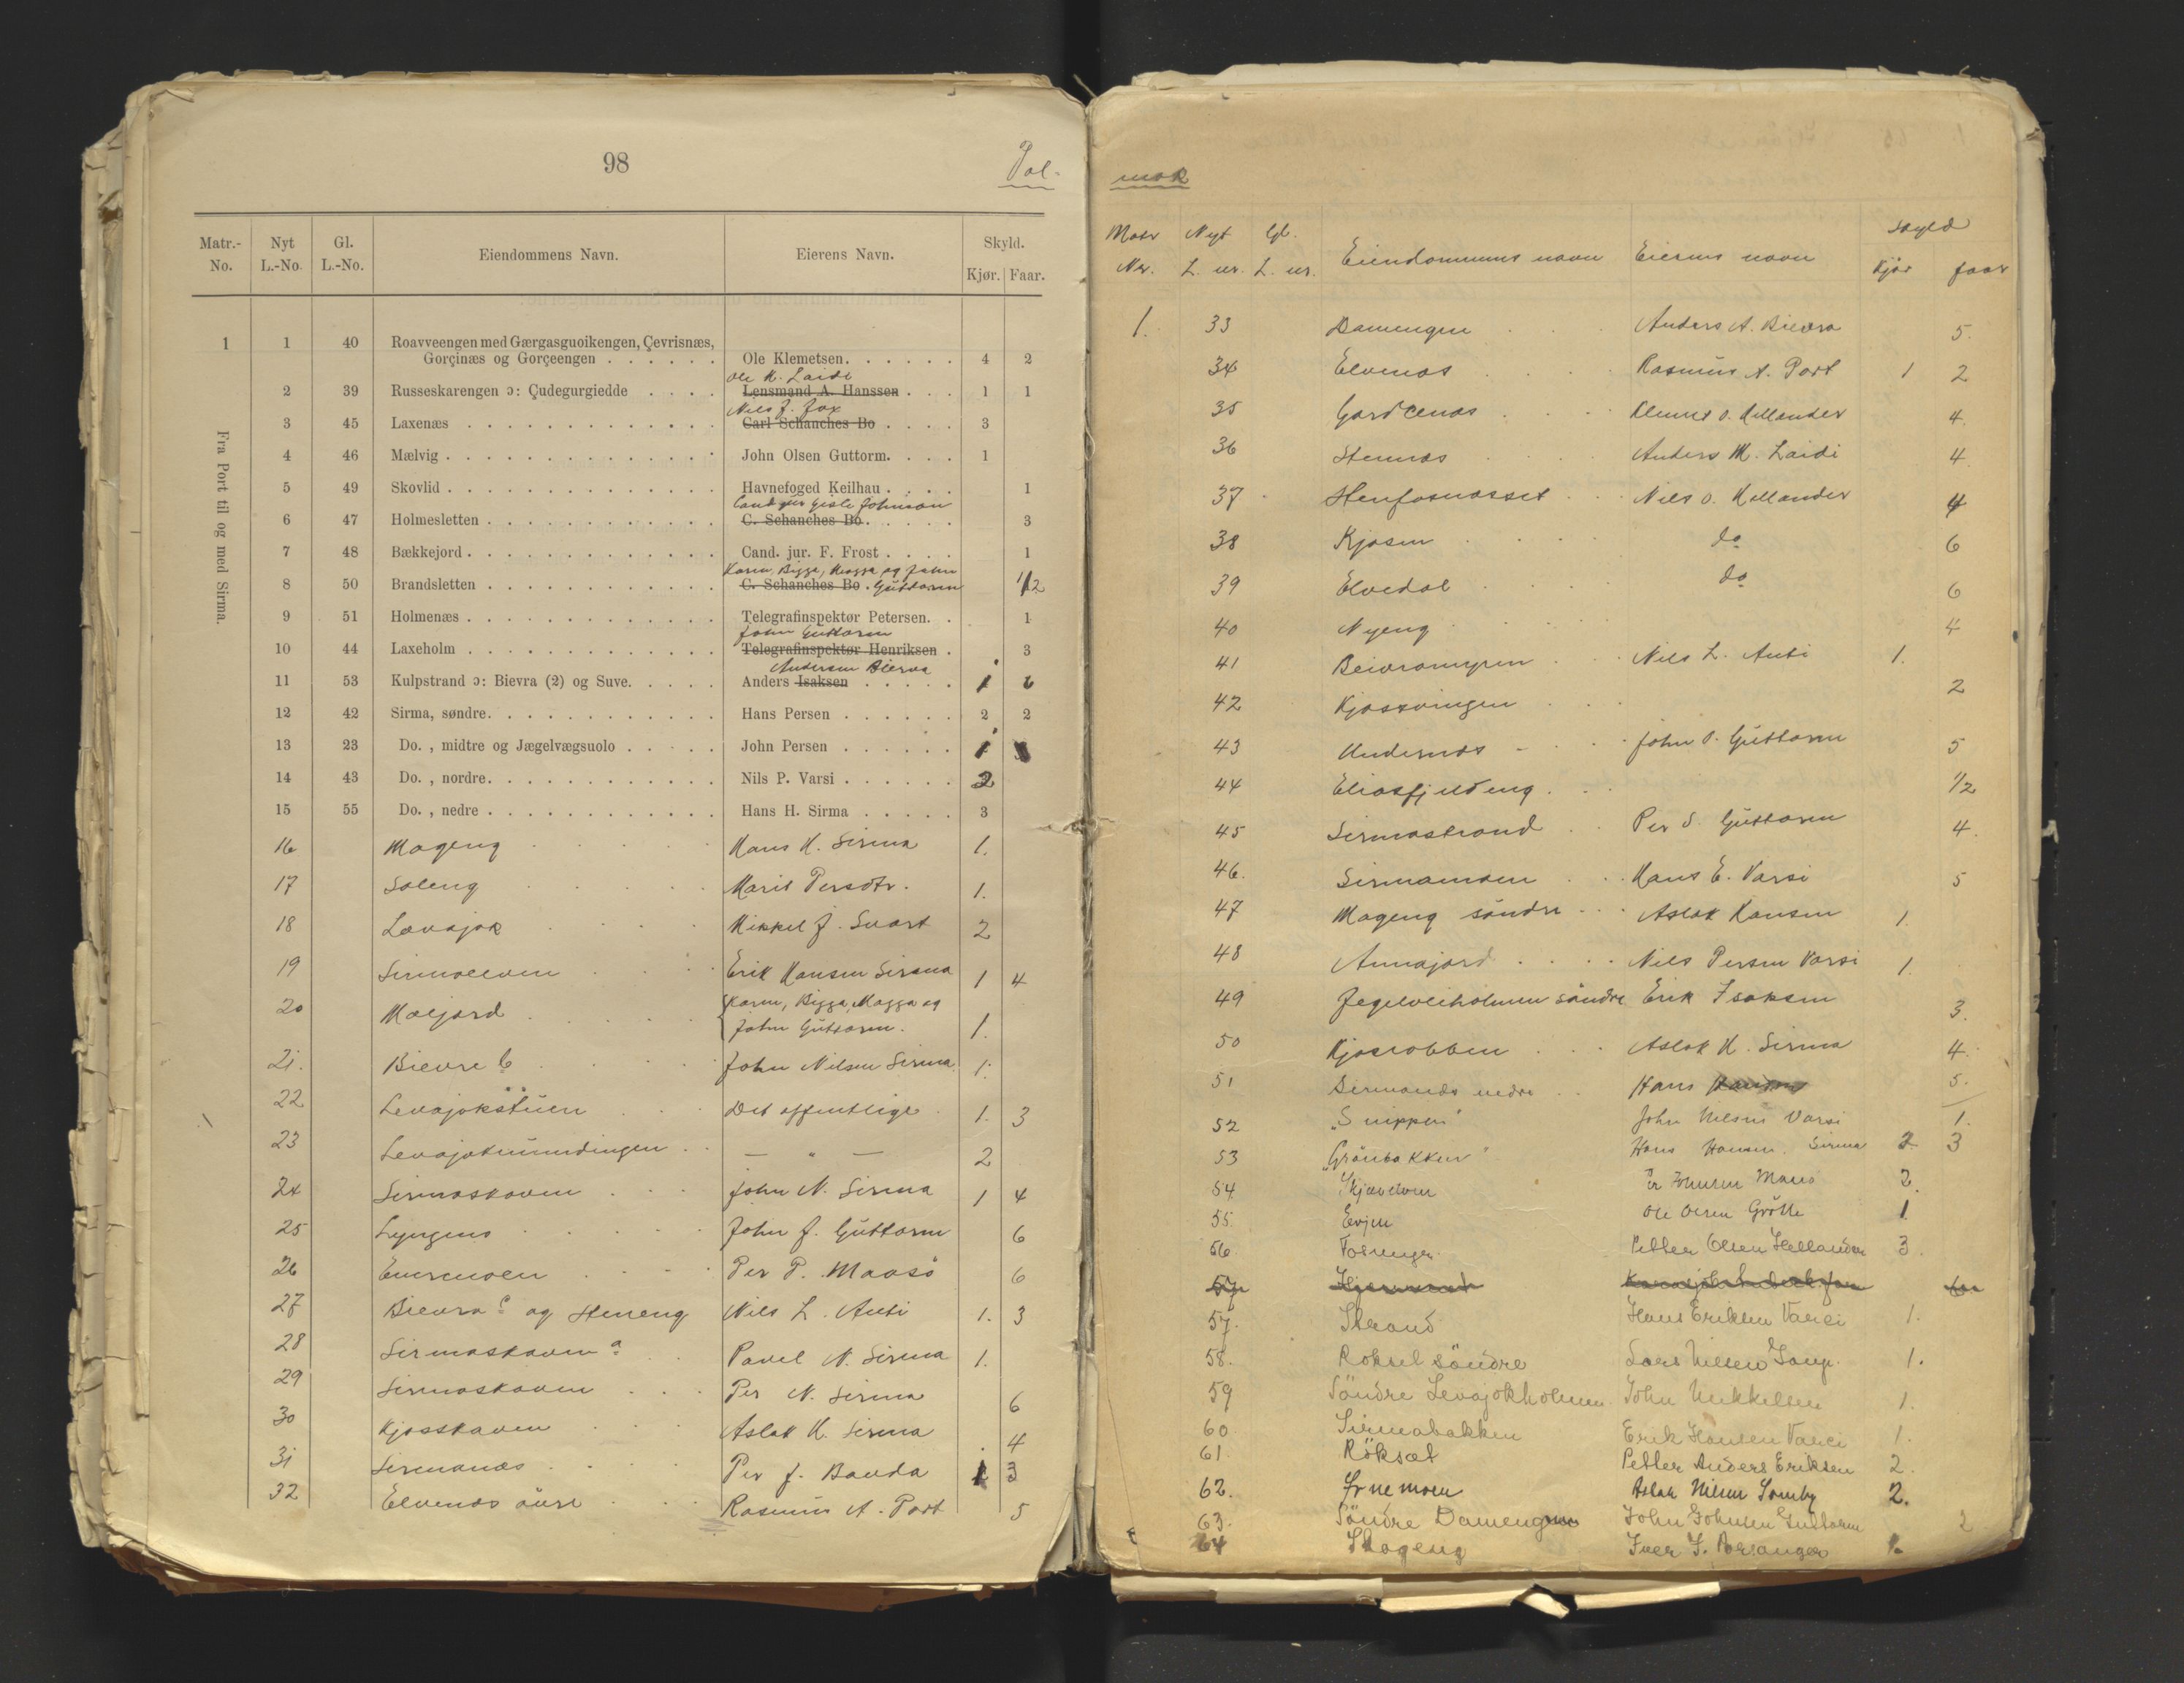 98
Pol-
Matr.-No. Nyt L.-No. Gl. L.-No. Eiendommens Navn. Eierens Navn. Skyld. Kjør. Faar.
Fra Port til og med Sirma.
1 1 40 Roavveengen med Gærgasguoikengen, Çevrisnæs,
Gorçinæs og Gorçeengen . . . . . . Ole Klemetsen. . . . . . 4 2
Ole H. Laidi
2 39 Russeskarengen ɔ: Çudegurgiedde . . . . Lensmand A. Hanssen . . . 1 1
Nils J. Fox
3 45 Laxenæs . . . . . . . . . . . . . Carl Schanches Bo . . . . 3
4 46 Mælvig . . . . . . . . . . . . . . John Olsen Guttorm. . . . 1
5 49 Skovlid . . . . . . . . . . . . . . Havnefoged Keilhau . . . . 1
Cand jur Gisle Johnson
6 47 Holmesletten . . . . . . . . . . . . C. Schanches Bo . . . . . 3
7 48 Bækkejord . . . . . . . . . . . . . Cand. jur. F. Frost . . . . 1
Karen, Bigga, Magga og John
8 50 Brandsletten . . . . . . . . . . . . C. Schanches Bo . Guttorm 1/2
9 51 Holmenæs . . . . . . . . . . . . . Telegrafinspektør Petersen. . 1
John Guttorm
10 44 Laxeholm . . . . . . . . . . . . . Telegrafinspektør Henriksen . 3
Andersen Bievra
11 53 Kulpstrand ɔ: Bievra (2) og Suve. . . . . Anders Isaksen . . . . . 1 6
12 42 Sirma, søndre. . . . . . . . . . . . Hans Persen . . . . . . 2 2
13 23 Do. , midtre og Jægelvægsuolo . . . . . John Persen . . . . . . 1
14 43 Do. , nordre. . . . . . . . . . . . Nils P. Varsi . . . . . . 2
15 55 Do. , nedre . . . . . . . . . . . . Hans H. Sirma . . . . . 3
16 Mageng Hans H. Sirma 1.
17 Soleng Marit Persdtr. 1.
18 Lavajok Mikkel J. Svart 2
19 Sirmaelven Erik Hansen Sirma 1 4
20 Mæljord Karen, Bigga, Magga og
John Guttorm. 1.
21. Bievre b John Nilsen Sirma 1.
22 Levajokstuen Det offentlige 1. 3
23 Levajokmundingen — " — 2
24 Sirmaskaven John N. Sirma 1 4
25 Lyngnes John J. Guttorm 6
26 Enermoen Per P. Maasö 6
27 Bievra c og Steneng Nils L. Anti 1. 3
28 Sirmaskaven a Pavel N. Sirma 1.
29 Sirmaskaven Per N. Sirma 6
30 Kjosskaven Aslak H. Sirma 4
31 Sirmanæs Per J. Banda 1 3
32 Elvenæs övre Rasmus A. Port 5
mak
Matr Nr. Nyt L. nr. Gl. L. nr. Eiendommens navn Eierens navn Skyld Kjör faar
1. 33 Damengen Anders A. Bievra 5.
34 Elvenæs Rasmus A. Port 1 2
35 Gorccenæs Klemet O. Hellander 4.
36 Stennæs Anders M. Laidi 4.
37 Stenfosnæsset Nils O. Hellander 4
38 Kjosen do 6
39 Elvedal do 6
40 Nyeng 4
41 Beivramyren Nils L. Anti 1.
42 Kjossvingen 2
43 Undernæs John O. Guttorm 5
44 Eliasfjeldeng 1/2
45 Sirmastrand Per S. Guttorm 4.
46. Sirmamoen Hans E. Varsi 5
47 Mageng söndre Aslak Hansen 1.
48 Annajord Nils Persen Varsi 1.
49 Jegelveiholmen söndre Erik Isaksen 3.
50 Kjosrabben Aslak H. Sirma 4.
51 Sirmanæs nedre Hans Hansen 5.
52 "Snippen" John Nilsen Varsi 1.
53 "Grönbakken" Hans Hansen Sirma 2 3
54 Skjævelven Per Johnsen Maas 2.
55. Evjen Ole Olsen Grötte 1
56 Fosseng Petter Olsen Hellander 3.
57.
57. Strand Hans Eriksen Varsi 1.
58. Roksel söndre Lars Nilsen 1.
59 Söndre Levajokholmen John Mikkelsen 1.
60 Sirmabakken Erik Hansen Varsi 1.
61. Röksæt Petter Anders Eriksen 2.
62. Ornemoen Aslak Nilsen Somby 2.
63. Söndre Damengen John Johnsen Guttorm 2
64 Skogeng Iver J. Porsanger 1.